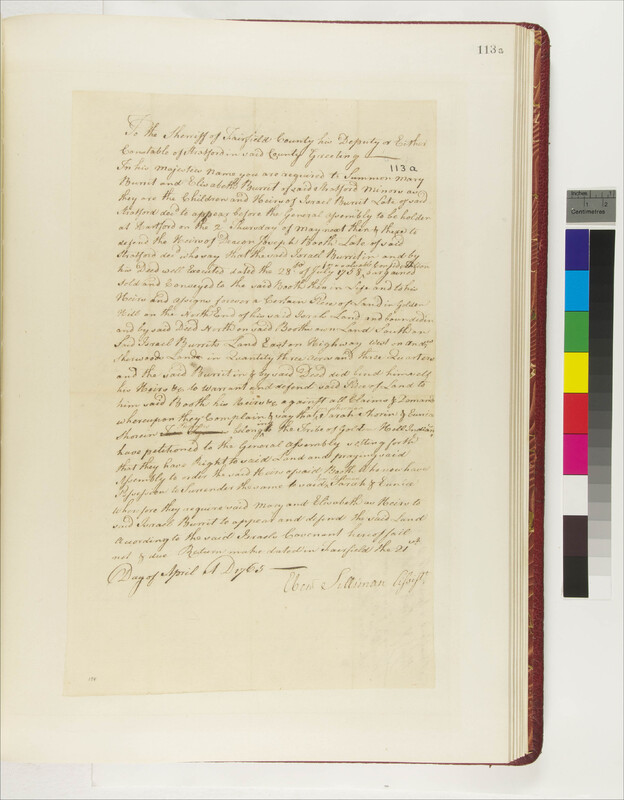 113a
To the Sheriff of Fairfield County his Deputy or Either
Constable of Stratford in said County Greeting
113a
In his majesties Name you are required to Summon Mary
Burrit and Elisabeth Burrit of said Stratford Minors and
they are the Children and Heirs of Israel Burrit Late of said
Stratford decd to appear before the General Assembly to be holden
at Hartford on the 2 Thursday of May next then & there to
defend the Heirs of Deacon Joseph Booth Late of said
Stratford decd who say that the said Israel Burrit in and by
his Deed well Executed dated the 28th of July 1738, for a valuable Consideration bargained
Sold and Conveyed to the said Booth then in Life and to his
Heirs and Assigns forever a Certain Piece of Land in Golden
Hill on the North End of his said Israels Land and bounded in
and by said Deed North on said Booths own Land South on
Said Israel Burrits Land East on Highway West on
Sherwoods Land in Quantity three Acres and three Quarters
and the said Burrit in & by said Deed did bind himself
his Heirs &c to Warrant and defend said Piece of Land to
him said Booth his Heirs &c against all Claims & Demands
whereupon they Complain & say that Sarah Shoran & Eunice
Shoran belonging to the Tribe of Golden Hill Indians
have petitioned to the General Assembly setting forth
that they have Right to said Land and praying said
Assembly to order the said Heirs of said Booth who now have
Possession to Surrender the same to said Sarah & Eunice
Wherefore they require said Mary and Elisabeth as Heirs to
said Israel Burrit to appear and defend the said Land
According to the said Israels Covenant hereof fail
not & due Return make dated in Fairfield the 21st
Day of April A D 1765
Ebenr Silliman Assist